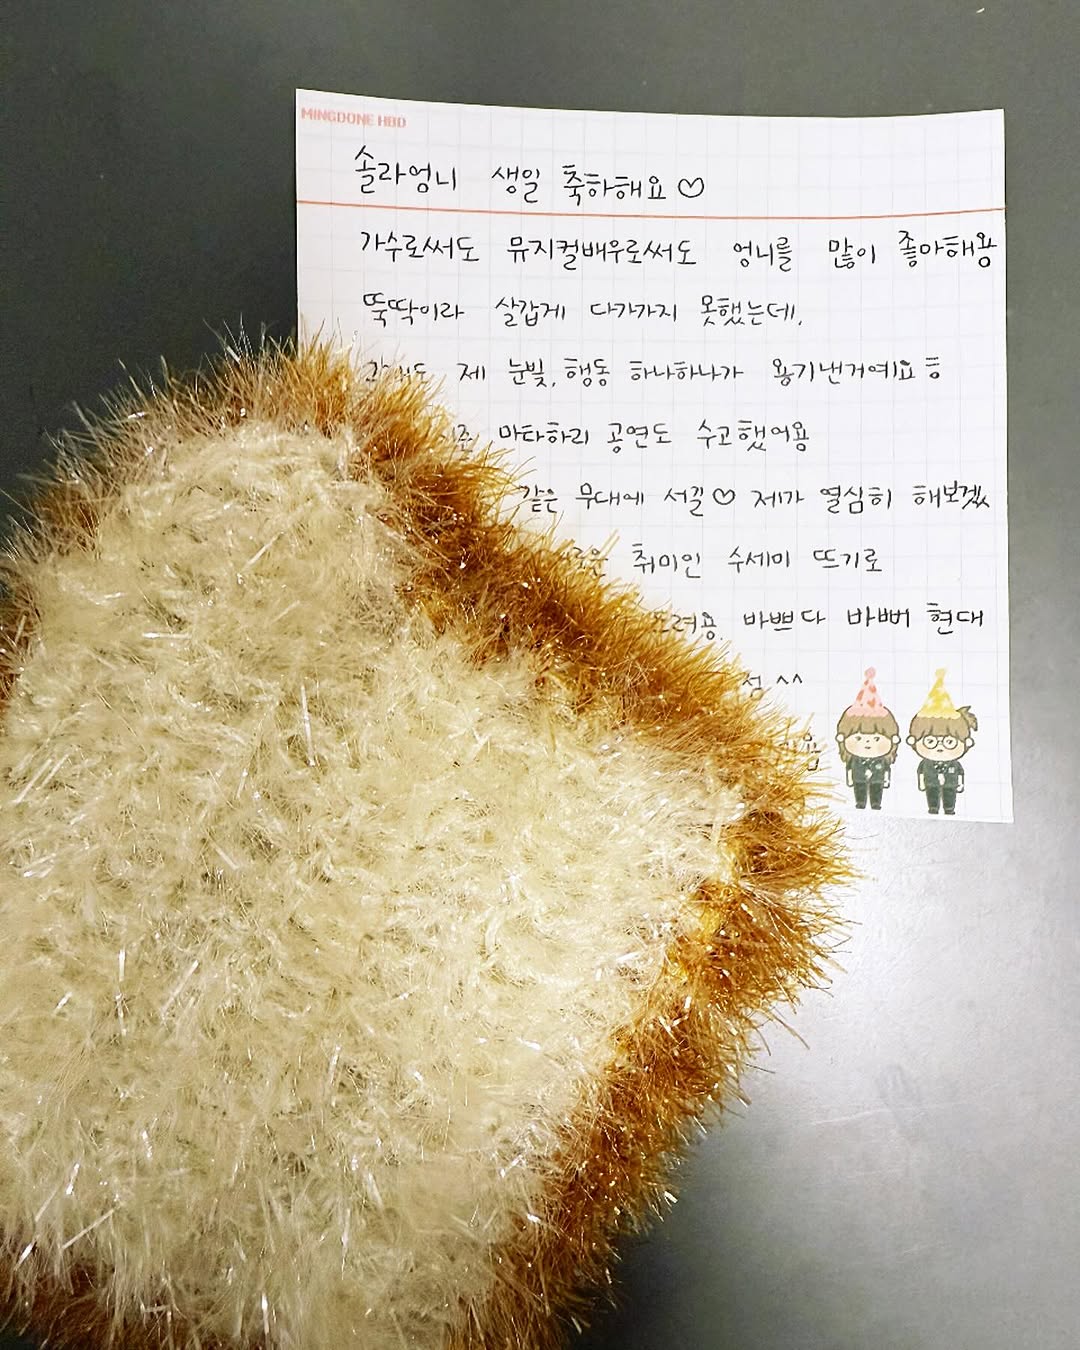 MINGDONE HBD
솔라엄니 생일 축하해요♡
가수로써도 뮤지컬배우로써도 엄니를 많이 좋아해용
뚝딱이라 살갑게 다가가지 못했는데,
제 눈빛, 행동 하나하나가 용기낸거예요ㅎ
마타하리 공연도 수고했어용
같은 무대에 서길♡ 제가 열심히 해보겠
취미인 수세미 뜨기로
바쁘다 바뻐 현대
^^